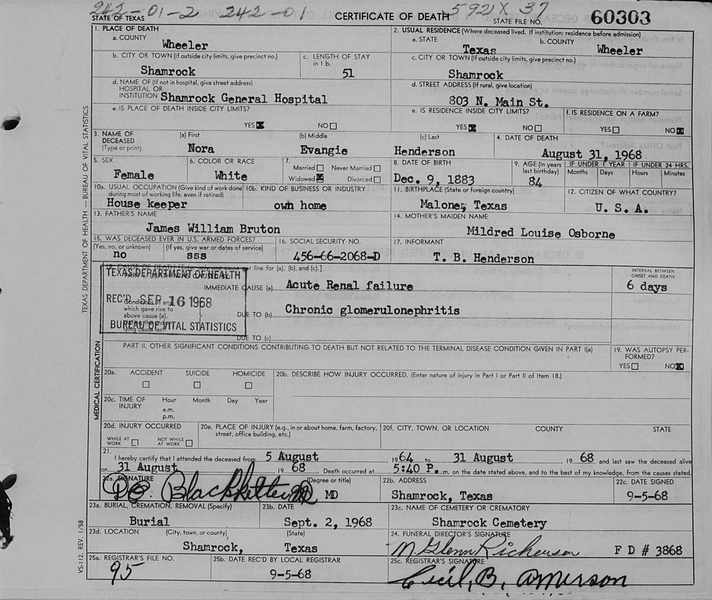 242-01-2 242-01 CERTIFICATE OF DEATH 5921X 37
STATE OF TEXAS STATE FILE NO. 60303
1. PLACE OF DEATH 2. USUAL RESIDENCE (Where deceased lived. If institution: residence before admission)
a. COUNTY a. STATE b. COUNTY
Wheeler Texas Wheeler
b. CITY OR TOWN (If outside city limits, give precinct no.) c. LENGTH OF STAY in 1 b. c. CITY OR TOWN (If outside city limits, give precinct no.)
Shamrock 51 Shamrock
d. NAME OF (If not in hospital, give street address) d. STREET ADDRESS (If rural, give location)
HOSPITAL OR
INSTITUTION Shamrock General Hospital 803 N. Main St.
e. IS PLACE OF DEATH INSIDE CITY LIMITS? e. IS RESIDENCE INSIDE CITY LIMITS? f. IS RESIDENCE ON A FARM?
YES NO YES NO YES NO
3. NAME OF DECEASED (a) First (b) Middle (c) Last 4. DATE OF DEATH
(Type or print) Nora Evangie Henderson August 31, 1968
5. SEX 6. COLOR OR RACE 7. Married Never Married 8. DATE OF BIRTH 9. AGE (In years last birthday) IF UNDER 1 YEAR IF UNDER 24 HRS.
Months Days Hours Minutes
Female White Widowed Divorced Dec. 9, 1883 84
10a. USUAL OCCUPATION (Give kind of work done during most of working life, even if retired) 10b. KIND OF BUSINESS OR INDUSTRY 11. BIRTHPLACE (State or foreign country) 12. CITIZEN OF WHAT COUNTRY?
House keeper own home Malone, Texas U. S. A.
13. FATHER'S NAME 14. MOTHER'S MAIDEN NAME
James William Bruton Mildred Louise Osborne
15. WAS DECEASED EVER IN U.S. ARMED FORCES? 16. SOCIAL SECURITY NO. 17. INFORMANT
(Yes, no, or unknown) (If yes, give war or dates of service)
no sss 456-66-2068-D T. B. Henderson
line for (a), (b), and (c).] INTERVAL BETWEEN ONSET AND DEATH
TEXAS DEPARTMENT OF HEALTH
IMMEDIATE CAUSE (a) Acute Renal failure 6 days
REC'D SEP 16 1968
which gave rise to above cause (a), DUE TO (b) Chronic glomerulonephritis
BUREAU OF VITAL STATISTICS
DUE TO (c)
PART II. OTHER SIGNIFICANT CONDITIONS CONTRIBUTING TO DEATH BUT NOT RELATED TO THE TERMINAL DISEASE CONDITION GIVEN IN PART I(a) 19. WAS AUTOPSY PERFORMED?
YES NO
20a. ACCIDENT SUICIDE HOMICIDE 20b. DESCRIBE HOW INJURY OCCURRED. (Enter nature of injury in Part I or Part II of item 18.)
20c. TIME OF INJURY Hour Month Day Year
a.m.
p.m.
20d. INJURY OCCURRED 20e. PLACE OF INJURY (e.g., in or about home, farm, factory, street, office building, etc.) 20f. CITY, TOWN, OR LOCATION COUNTY STATE
WHILE AT WORK NOT WHILE AT WORK
21. I hereby certify that I attended the deceased from 5 August 1964 to 31 August 1968 and last saw the deceased alive
on 31 August 1968 Death occurred at 5:40 P.m. on the date stated above, and to the best of my knowledge, from the causes stated.
22a. SIGNATURE (Degree or title) 22b. ADDRESS 22c. DATE SIGNED
MD Shamrock, Texas 9-5-68
23a. BURIAL, CREMATION, REMOVAL (Specify) 23b. DATE 23c. NAME OF CEMETERY OR CREMATORY
Burial Sept. 2, 1968 Shamrock Cemetery
23d. LOCATION (City, town, or county) (State) 24. FUNERAL DIRECTOR'S SIGNATURE
Shamrock, Texas M Glenn Richerson F D # 3868
25a. REGISTRAR'S FILE NO. 25b. DATE REC'D BY LOCAL REGISTRAR 25c. REGISTRAR'S SIGNATURE
95 9-5-68 Cecil, B. Amerson
TEXAS DEPARTMENT OF HEALTH — BUREAU OF VITAL STATISTICS
MEDICAL CERTIFICATION
VS-112 REV. 1/58